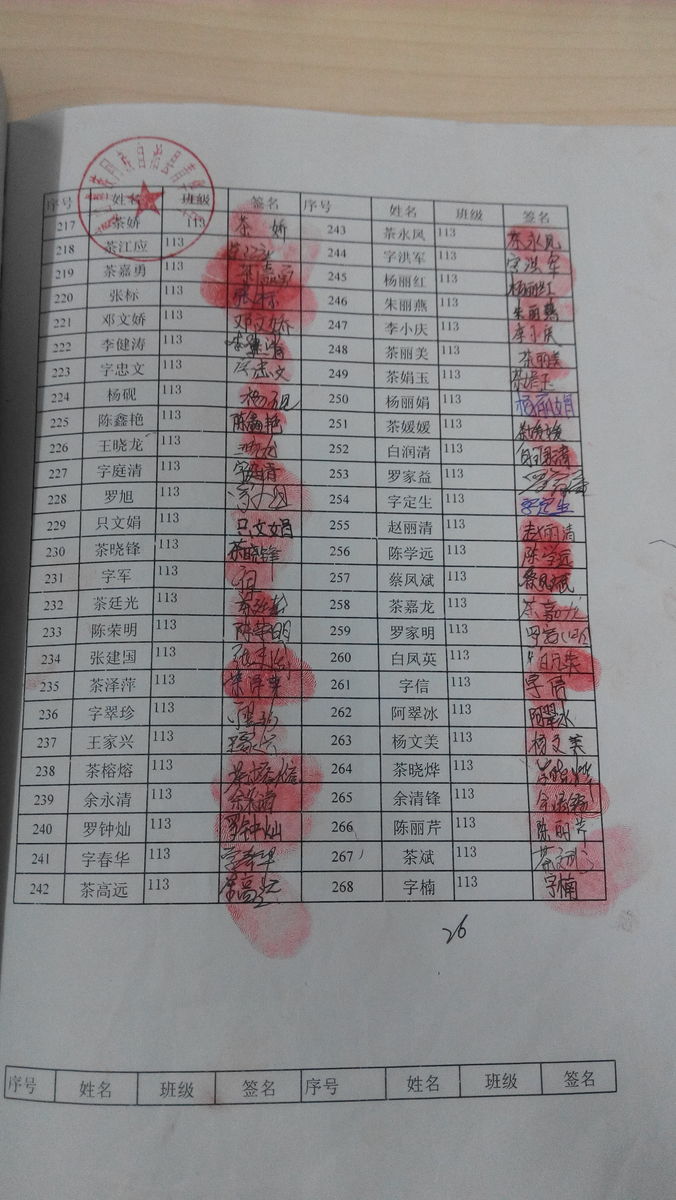 序号 姓名 班级 签名 序号 姓名 班级 签名
217 茶娇 113 茶娇 243 茶永凤 113 茶永凤
218 茶江应 113 244 字洪军 113 字洪军
219 茶嘉勇 113 茶嘉勇 245 杨丽红 113 杨丽红
220 张标 113 张标 246 朱丽燕 113 朱丽燕
221 邓文娇 113 邓文娇 247 李小庆 113 李小庆
222 李健涛 113 李健涛 248 茶丽美 113 茶丽美
223 字忠文 113 字忠文 249 茶娟玉 113 茶娟玉
224 杨砚 113 杨砚 250 杨丽娟 113 杨丽娟
225 陈鑫艳 113 陈鑫艳 251 茶媛媛 113 茶媛媛
226 王晓龙 113 252 白润清 113 白润清
227 字庭清 113 字庭清 253 罗家益 113 罗家益
228 罗旭 113 254 字定生 113 字定生
229 只文娟 113 只文娟 255 赵丽清 113 赵丽清
230 茶晓锋 113 茶晓锋 256 陈学远 113 陈学远
231 字军 113 257 蔡凤斌 113 蔡凤斌
232 茶廷光 113 258 茶嘉龙 113 茶嘉龙
233 陈荣明 113 陈荣明 259 罗家明 113 罗家明
234 张建国 113 260 白凤英 113 白凤英
235 茶泽萍 113 茶泽萍 261 字信 113 字信
236 字翠珍 113 262 阿翠冰 113 阿翠冰
237 王家兴 113 263 杨文美 113 杨文美
238 茶榕熔 113 茶榕熔 264 茶晓烨 113 茶晓烨
239 余永清 113 余永清 265 余清锋 113 余清锋
240 罗钟灿 113 罗钟灿 266 陈丽芹 113 陈丽芹
241 字春华 113 字春华 267 茶斌 113 茶斌
242 茶高远 113 茶高远 268 字楠 113 字楠
26
序号 姓名 班级 签名 序号 姓名 班级 签名